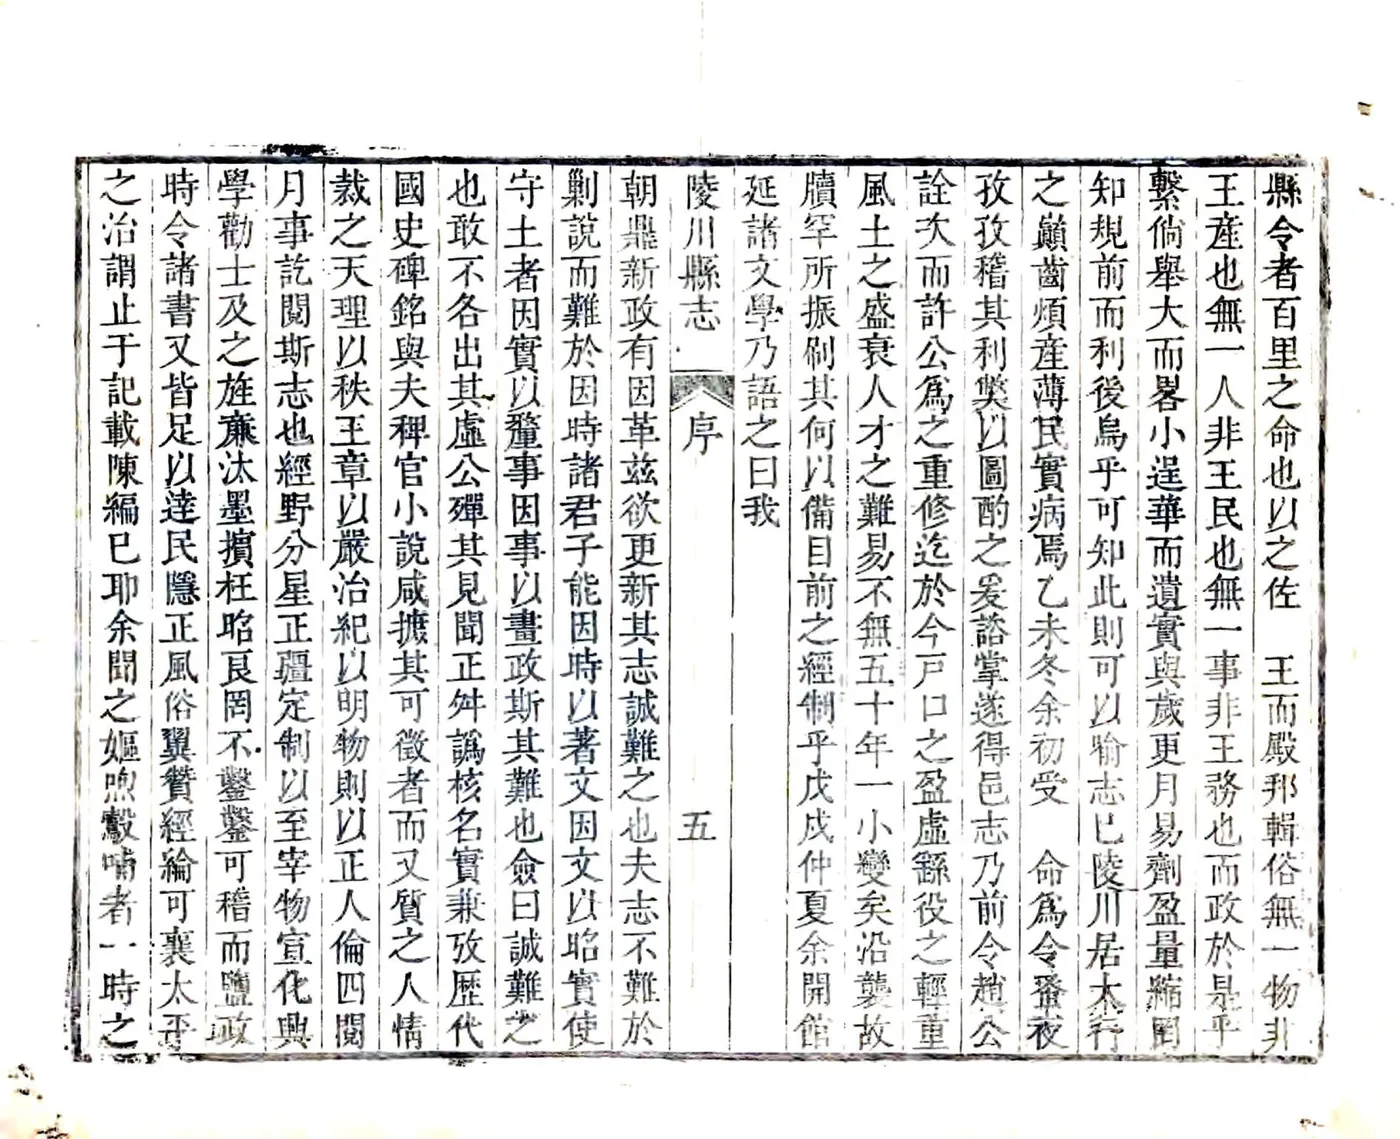 縣令者百里之命也以之佐　王而殿邦輯俗無一物非
王産也無一人非王民也無一事非王務也而政於是乎
繫倘舉大而畧小逞華而遺實與歲更月易劑盈量縮罔
知規前而利後烏乎可知此則可以喻志已陵川居太行
之巔齒煩産薄民實病焉乙未冬余初受　命爲令蚤夜
孜孜稽其利獘以圖酌之爰諮掌遂得邑志乃前令趙公
詮次而許公爲之重修迄於今戸口之盈虛繇役之輕重
風土之盛衰人才之難易不無五十年一小變矣沿襲故
牘罕所振刷其何以備目前之經制乎戊戌仲夏余開館
延諸文學乃語之曰我
陵川縣志
序
五
朝鼎新政有因革兹欲更新其志誠難之也夫志不難於
剿說而難於因時諸君子能因時以著文因文以昭實使
守土者因實以釐事因事以畫政斯其難也僉曰誠難之
也敢不各出其虛公殫其見聞正舛譌核名實兼攷歷代
國史碑銘與夫稗官小說咸摭其可徵者而又質之人情
裁之天理以秩王章以嚴治紀以明物則以正人倫四閱
月事訖閱斯志也經野分星正疆定制以至宰物宣化興
學勸士及之旌亷汰墨擯枉昭良罔不鑿鑿可稽而鹽政
時令諸書又皆足以逹民隱正風俗翼贊經綸可襄太平
之治謂止于記載陳編已耶余聞之嫗煦鷇哺者一時之